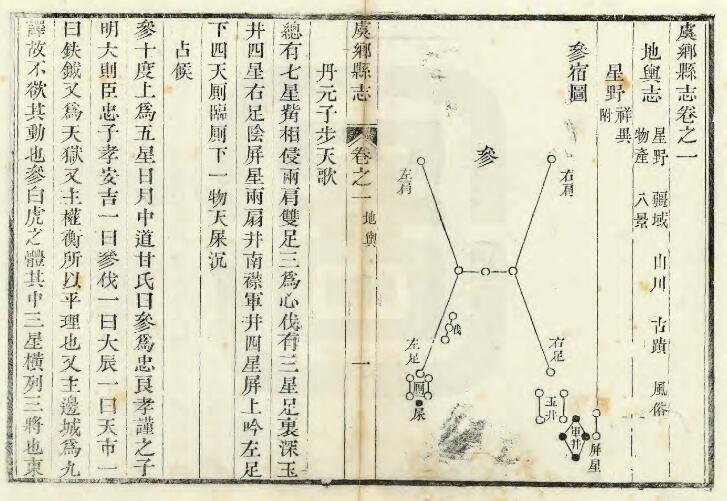 虞鄉縣志卷之一
地輿志 星野 疆域 山川 古蹟 風俗
物產 八景
星野 祥異附
參宿圖
參
右肩
左肩
伐
右足
左足
厠
屎
玉井
軍井
屏星
虞鄉縣志
卷之一 地輿
一
丹元子步天歌
總有七星觜相侵兩肩雙足三爲心伐有三星足裏深玉
井四星右足陰屏星兩扇井南襟軍井四星屏上吟左足
下四天厠臨厠下一物天屎沉
占候
參十度上爲五星日月中道甘氏曰參爲忠良孝謹之子
明大則臣忠子孝安吉一曰參伐一曰大辰一曰天市一
曰鈇鉞又爲天獄又主權衡所以平理也又主邊城爲九
譯故不欲其動也參白虎之體其中三星橫列三將也東